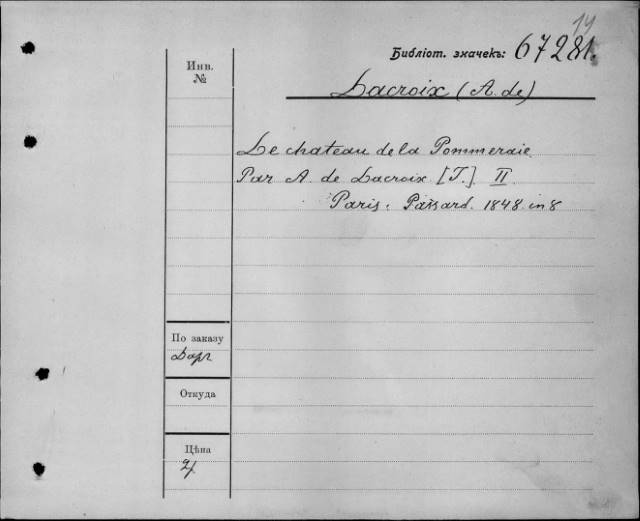 14
Библіот. значекъ: 67281.
Инв.
№
Lacroix (A. de)
Le chateau de la Pommeraie.
Par A. de Lacroix [T.] II
Paris. Passard. 1848. in 8
По заказу
Откуда
Цѣна